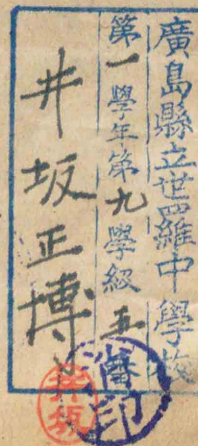 廣島縣立世羅中學校
第一學年第九學級五番
井坂正博
井坂